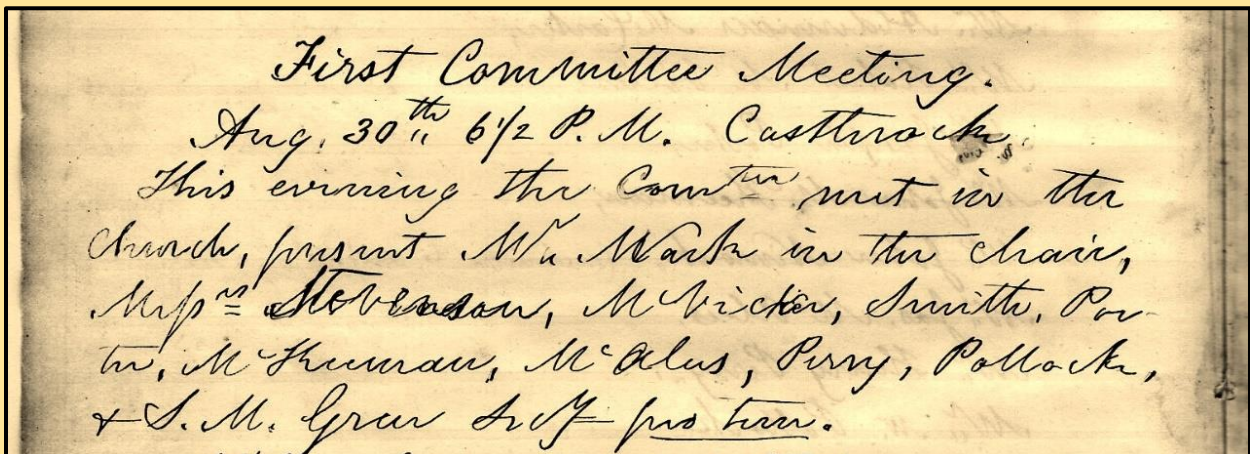 First Committee Meeting.
Aug. 30th 6 1/2 P. M. Castlerock
This evening the Comtee met in the
church, present Mr. Mark in the chair,
Messrs Stevenson, McVicker, Smith, Por-
ter, McKeeman, McAlus, Perry, Pollock,
& S. M. Greer Secy pro tem.